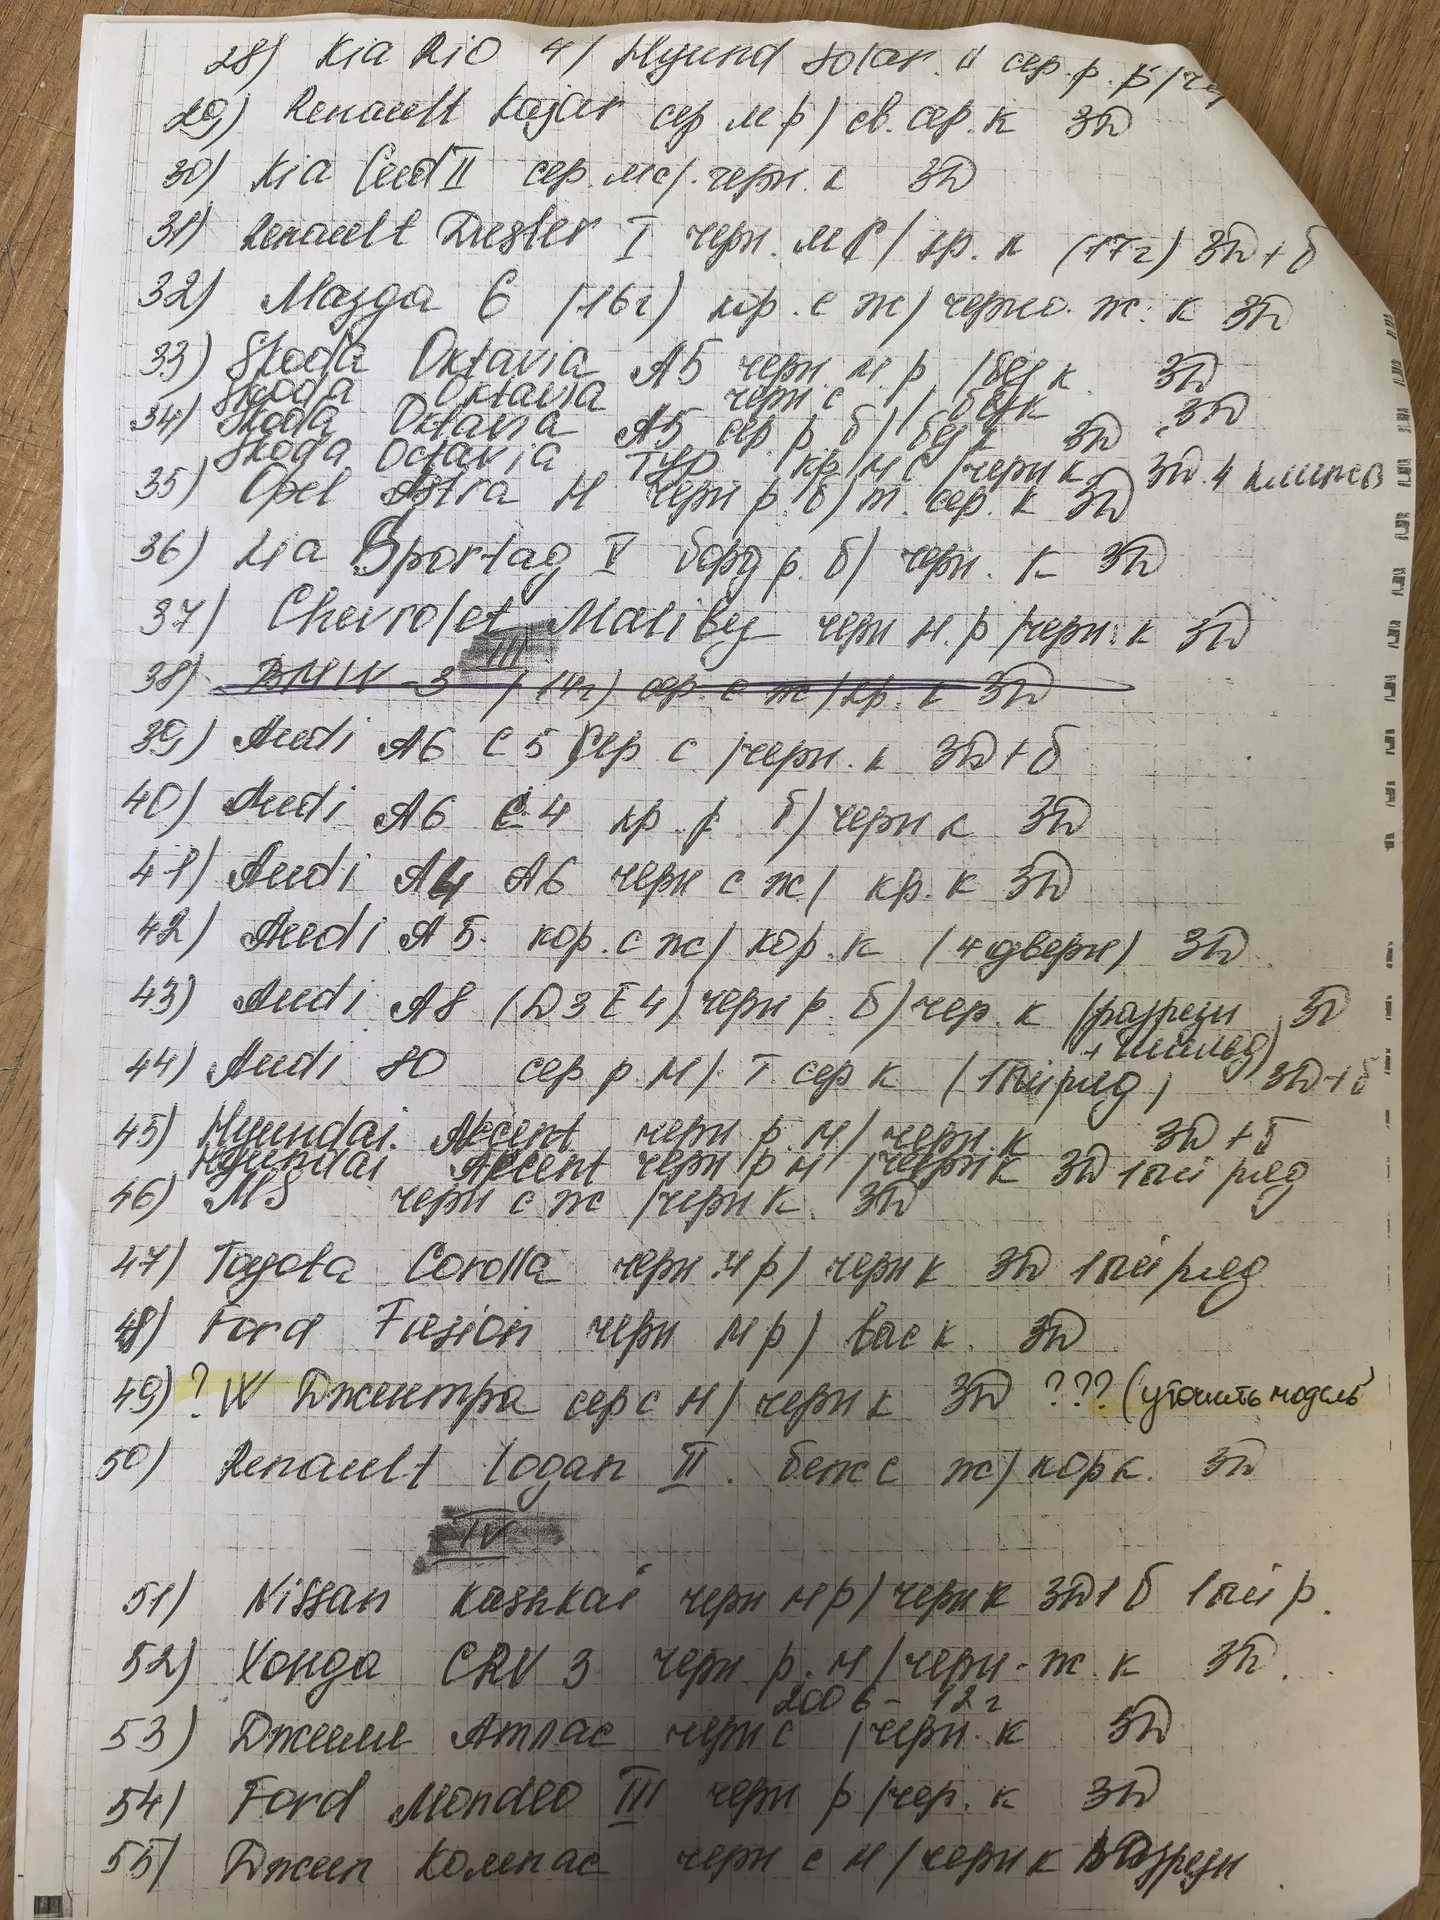 28) Kia RiO 4/ Hyund Solar. II сер. р. б/че
29) Renault Kajar сер м р/ св. сер. к 3D
30) Kia Ceed II сер. мс/. черн. к 3D
31) Renault Duster I черн. м р/ кр. к (17г) 3D + б
32) Мазда 6 (16г) кор. с ж/ черно. ж. к 3D
33) Skoda Oktavia А5 черн. м. р /беж к 3D
Skoda Oktavia черн с / беж к 3D
34) Skoda Oktavia А5 сер. р б/ беж к 3D
Skoda Octavia Тур кр/м с /черн к. 3D. 4 клипсы
35) Opel Astra H черн р. б/ т. сер. к 3D
36) Kia Sportag V борд р. б/ черн. к 3D
37) Chevrolet Maliby черн м. р /черн. к 3D
III
38) BMW - 3 (14г) сер. с ж/ кр. к 3D
39) Audi А6 С5 сер с /черн. к 3D + б
40) Audi А6 С4 кр. р. б/ черн к 3D
41) Audi А4 А6 черн с ж/ кр. к 3D
42) Audi А5. кор. с ж/ кор. к (4 двери) 3D
43) Audi А8 (D3 E4) черн р. б/ чер. к (разрезы 3D
+ шильд)
44) Audi 80 сер р. м/ т сер к (1ый ряд) 3D + б
45) Hyundai. Akcent черн р. м/ черн. к 3D + б
Hyundai Akcent черн р м /черн к 3D 1ый ряд
46) М5 черн с ж /черн к. 3D
47) Toyota Corolla черн. м р/ черн к 3D 1ый ряд
48) Ford Fusion черн м р/ вас к. 3D
49) ? W Джентра сер с м/ черн к 3D ??? (уточнить модель
50) Renault Logan II. беж с ж/ кор к. 3D
IV
51) Nissan Kashkai черн м р/ черн к 3D + б 1ый р.
52) Хонда CRV 3 черн р. м /черн - ж. к 3D.
2006 - 12 г
53) Джили Атлас черн с /черн. к 3D
54) Ford Mondeo III черн р /чер. к 3D
55) Джип Компас черн с м / черн к разрезы